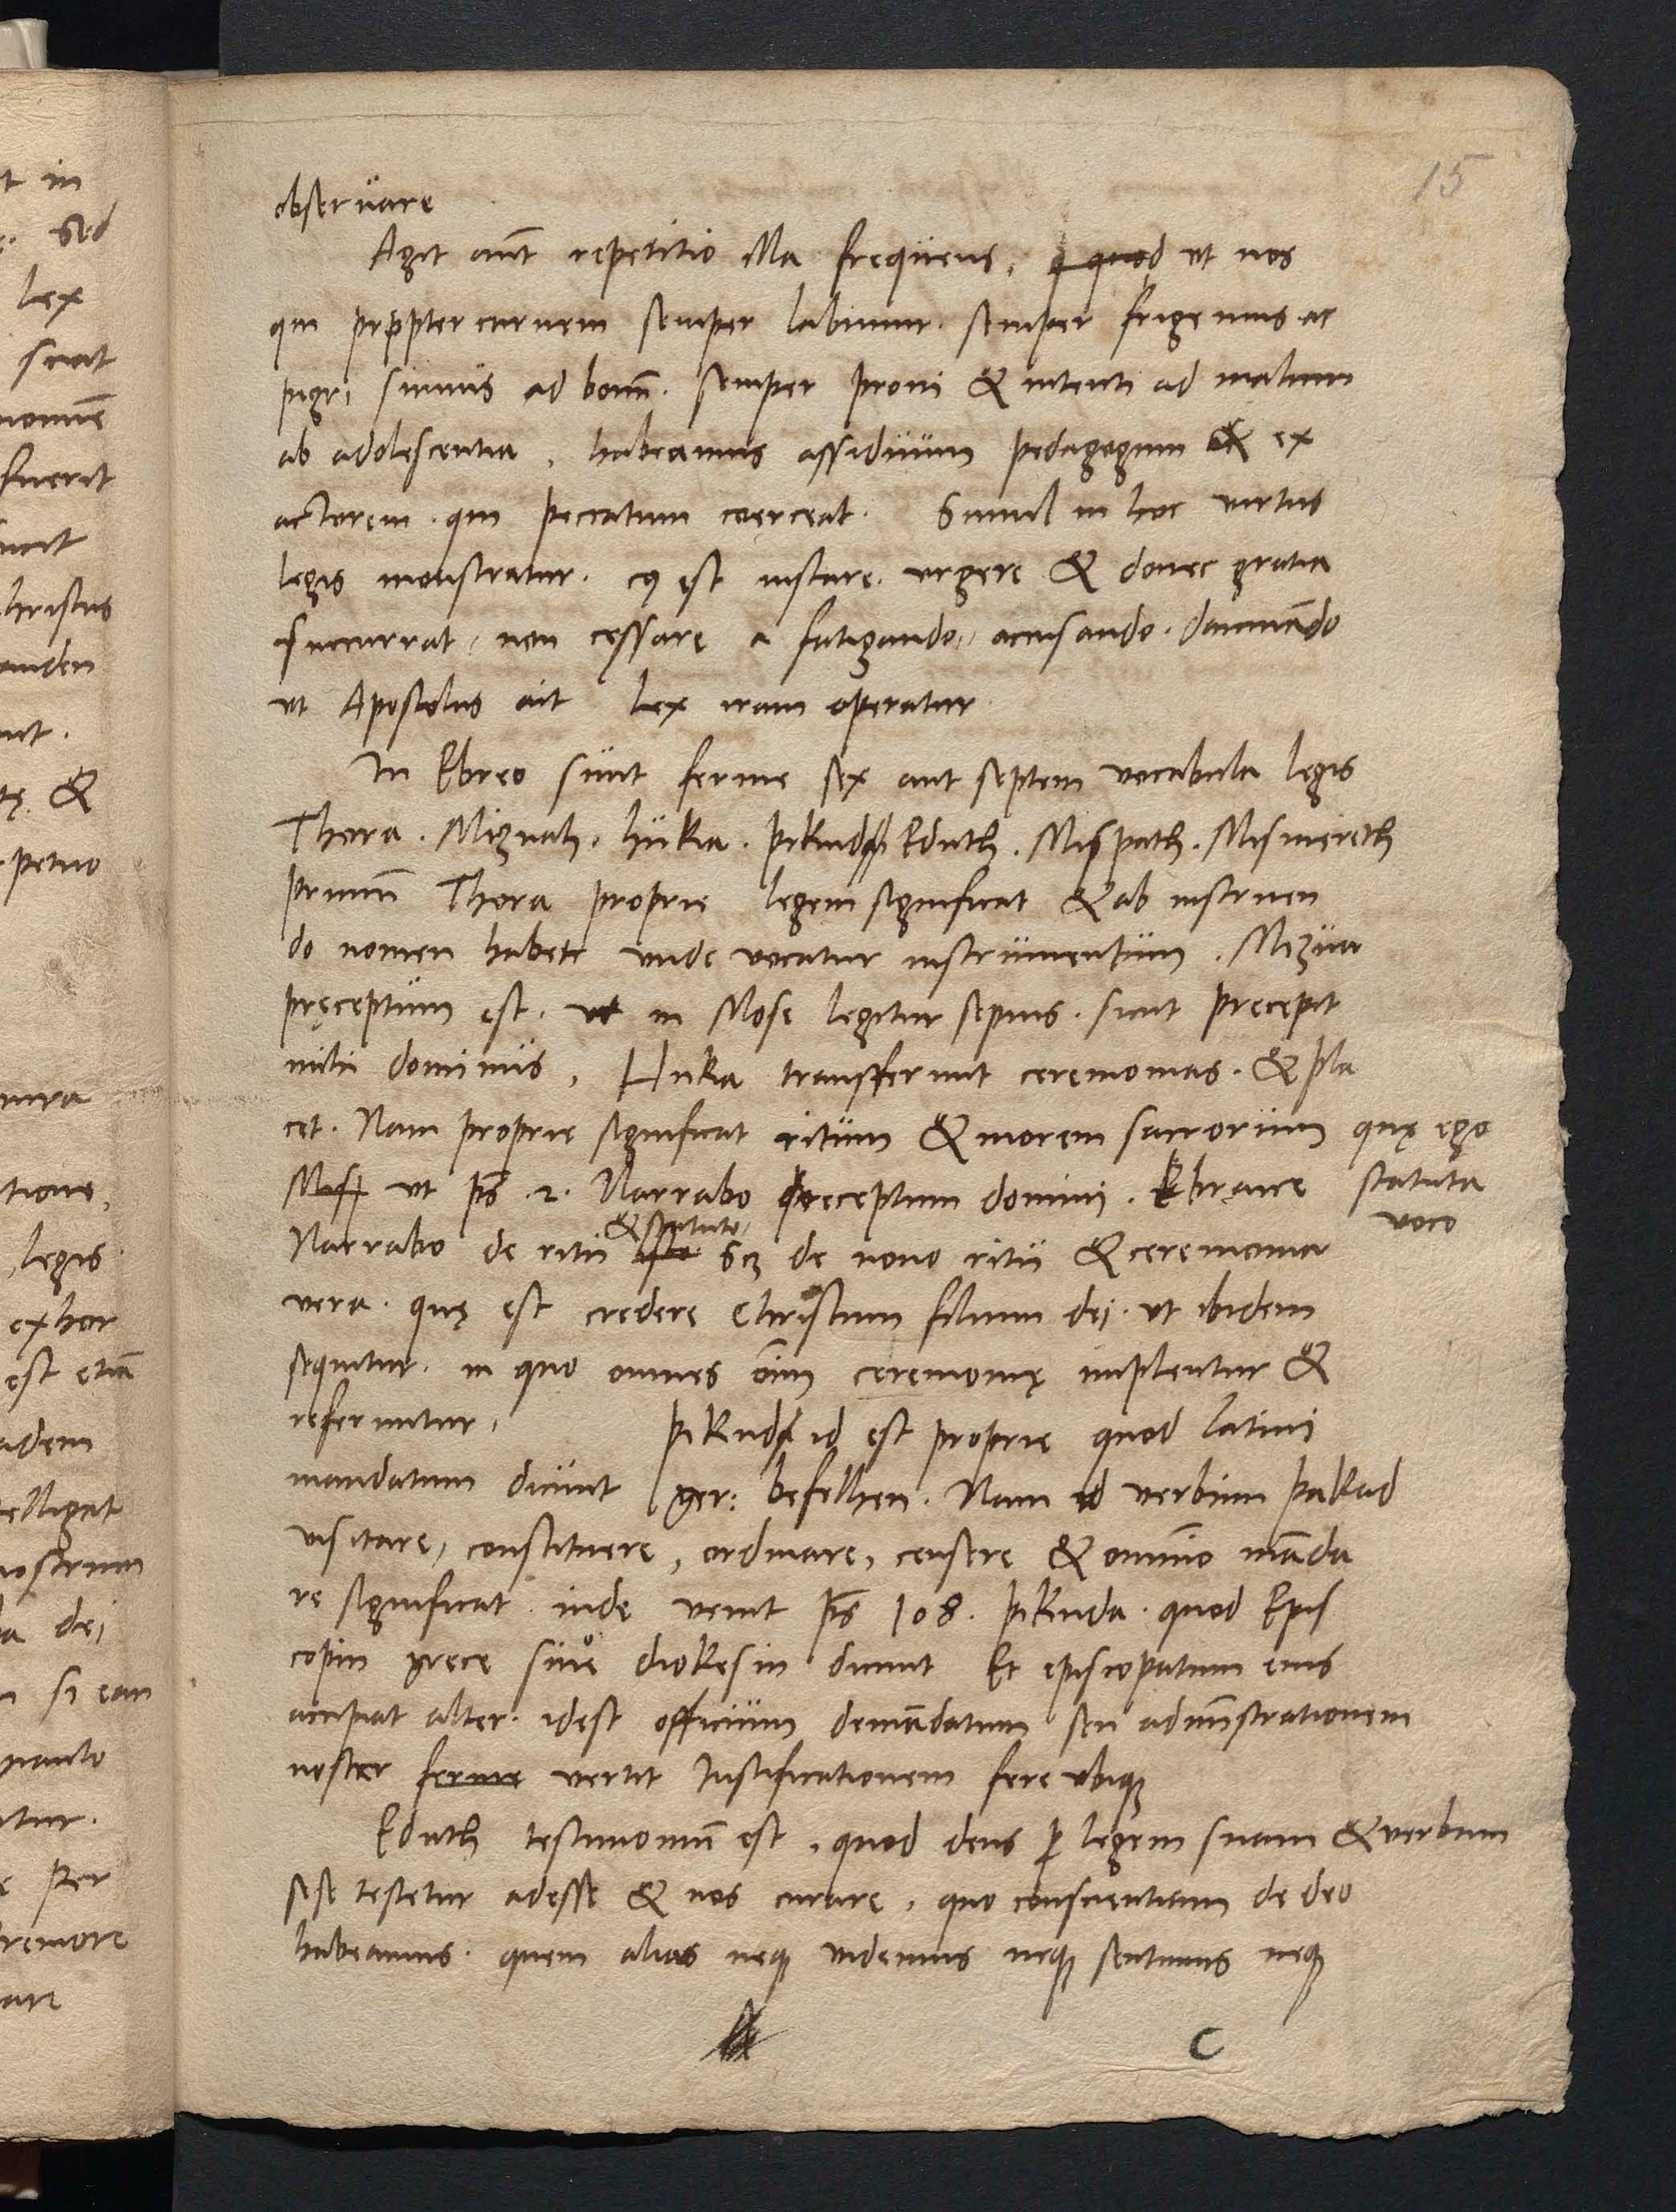 15
obseruare
Agit aut repetitio illa frequens, quod ut nos
qui propter carnem semper labimur. semper frigemus ac
pigri simus ad bonu. semper proni & intenti ad malum
ab adolescentia, habeamus assiduum pedagogum & ex
actorem. qui peccatum coerceat. Simul in hoc virtus
legis monstratur. cuius est instare. vrgere & donec gratia
succurrat, non cessare a fatigando, accusando. damnado
vt Apostolus ait Lex iram operatur
In Ebreo sunt ferme sex aut septem vocabula legis
Thora. Mizuah. hukia. pikud Eduth. Mispath. Mismereth
primu Thora proprie legem significat & ab instruen
do nomen habet vnde vocatur instrumentum. Mizua
pręceptum est. vt in Mose legitur sepius. sicut precepit
mihi dominus, Huka transfferunt ceremonias. & pla
cet. Nam proprie significat ritum & morem sacrorum quę ego
Misp vt ps .2. Narrabo preceptum domini. Ebraice statuta
voco
& statuto
Narrabo de ritu isto scz de nouo ritu & ceremonia
vera. quę est credere Christum filium dei. vt ibidem
sequitur. in quo omnes oim ceremonię implentur &
referuntur, pikud id est proprie quod latini
mandatum dicunt ger: befelhen. Nam id verbum pakad
visitare, constituere, ordinare, censere & omnino mada
re significat inde venit ps 108. pikuda. quod Epis
copin grece siue diokesin dicunt Et episcopatum eius
accipiat alter. idest officium demadatum seu administrationem
noster ferme vertit Iustificationem fere vbiq
Eduth testimoniu est, quod deus p legem suam & verbum
sese testetur adesse & nos curare, quo conscientiam de deo
habeamus. quem alias neq videmus neq sentimus neq
C